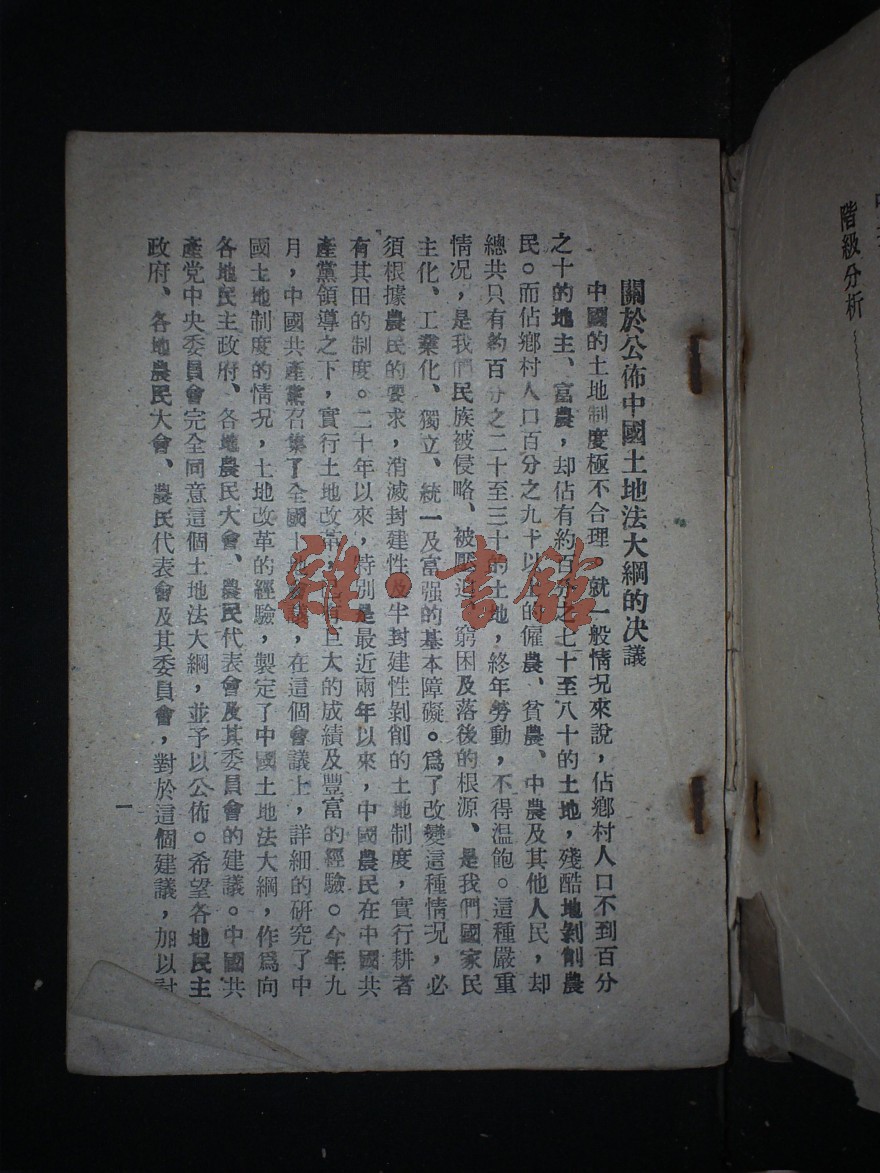 階級分析
關於公佈中國土地法大綱的决議
中國的土地制度極不合理 就一般情况來說，佔鄉村人口不到百分
之十的地主、富農，却佔有約百分之七十至八十的土地，殘酷地剝削農
民。而佔鄉村人口百分之九十以上的僱農、貧農、中農及其他人民，却
總共只有約百分之二十至三十的土地，終年勞動，不得溫飽。這種嚴重
情况，是我們民族被侵略、被壓迫、窮困及落後的根源、是我們國家民
主化、工業化、獨立、統一及富强的基本障礙。爲了改變這種情况，必
須根據農民的要求，消滅封建性及半封建性剝削的土地制度，實行耕者
有其田的制度。二十年以來，特別是最近兩年以來，中國農民在中國共
產黨領導之下，實行土地改革，巨大的成績及豐富的經驗。今年九
月，中國共產黨召集了全國土地會議，在這個會議上，詳細的硏究了中
國土地制度的情况，土地改革的經驗，製定了中國土地法大綱，作爲向
各地民主政府、各地農民大會、農民代表會及其委員會的建議。中國共
產党中央委員會完全同意這個土地法大綱，並予以公佈。希望各地民主
政府、各地農民大會、農民代表會及其委員會，對於這個建議，加以討
一
雜·書館